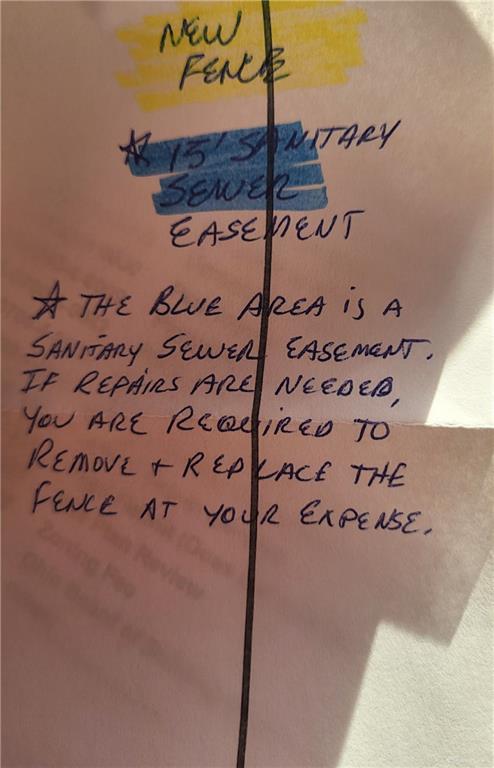 NEW
FENCE
☆ 15' SANITARY
SEWER
EASEMENT
☆ THE BLUE AREA IS A
SANITARY SEWER EASEMENT.
IF REPAIRS ARE NEEDED,
YOU ARE REQUIRED TO
REMOVE + REPLACE THE
FENCE AT YOUR EXPENSE.
Review
Zoning Fee